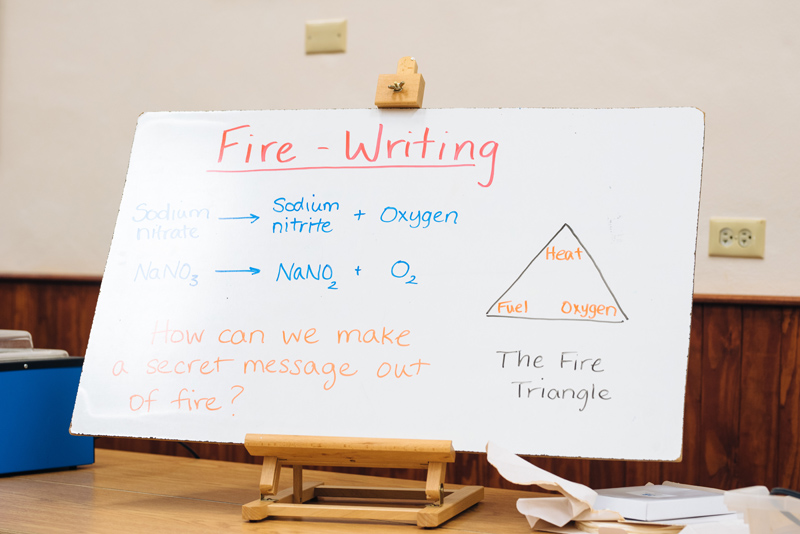 Fire - Writing
Sodium nitrate → Sodium nitrite + Oxygen
NaNO₃ → NaNO₂ + O₂
How can we make
a secret message out
of fire?
Heat
Fuel Oxygen
The Fire
Triangle